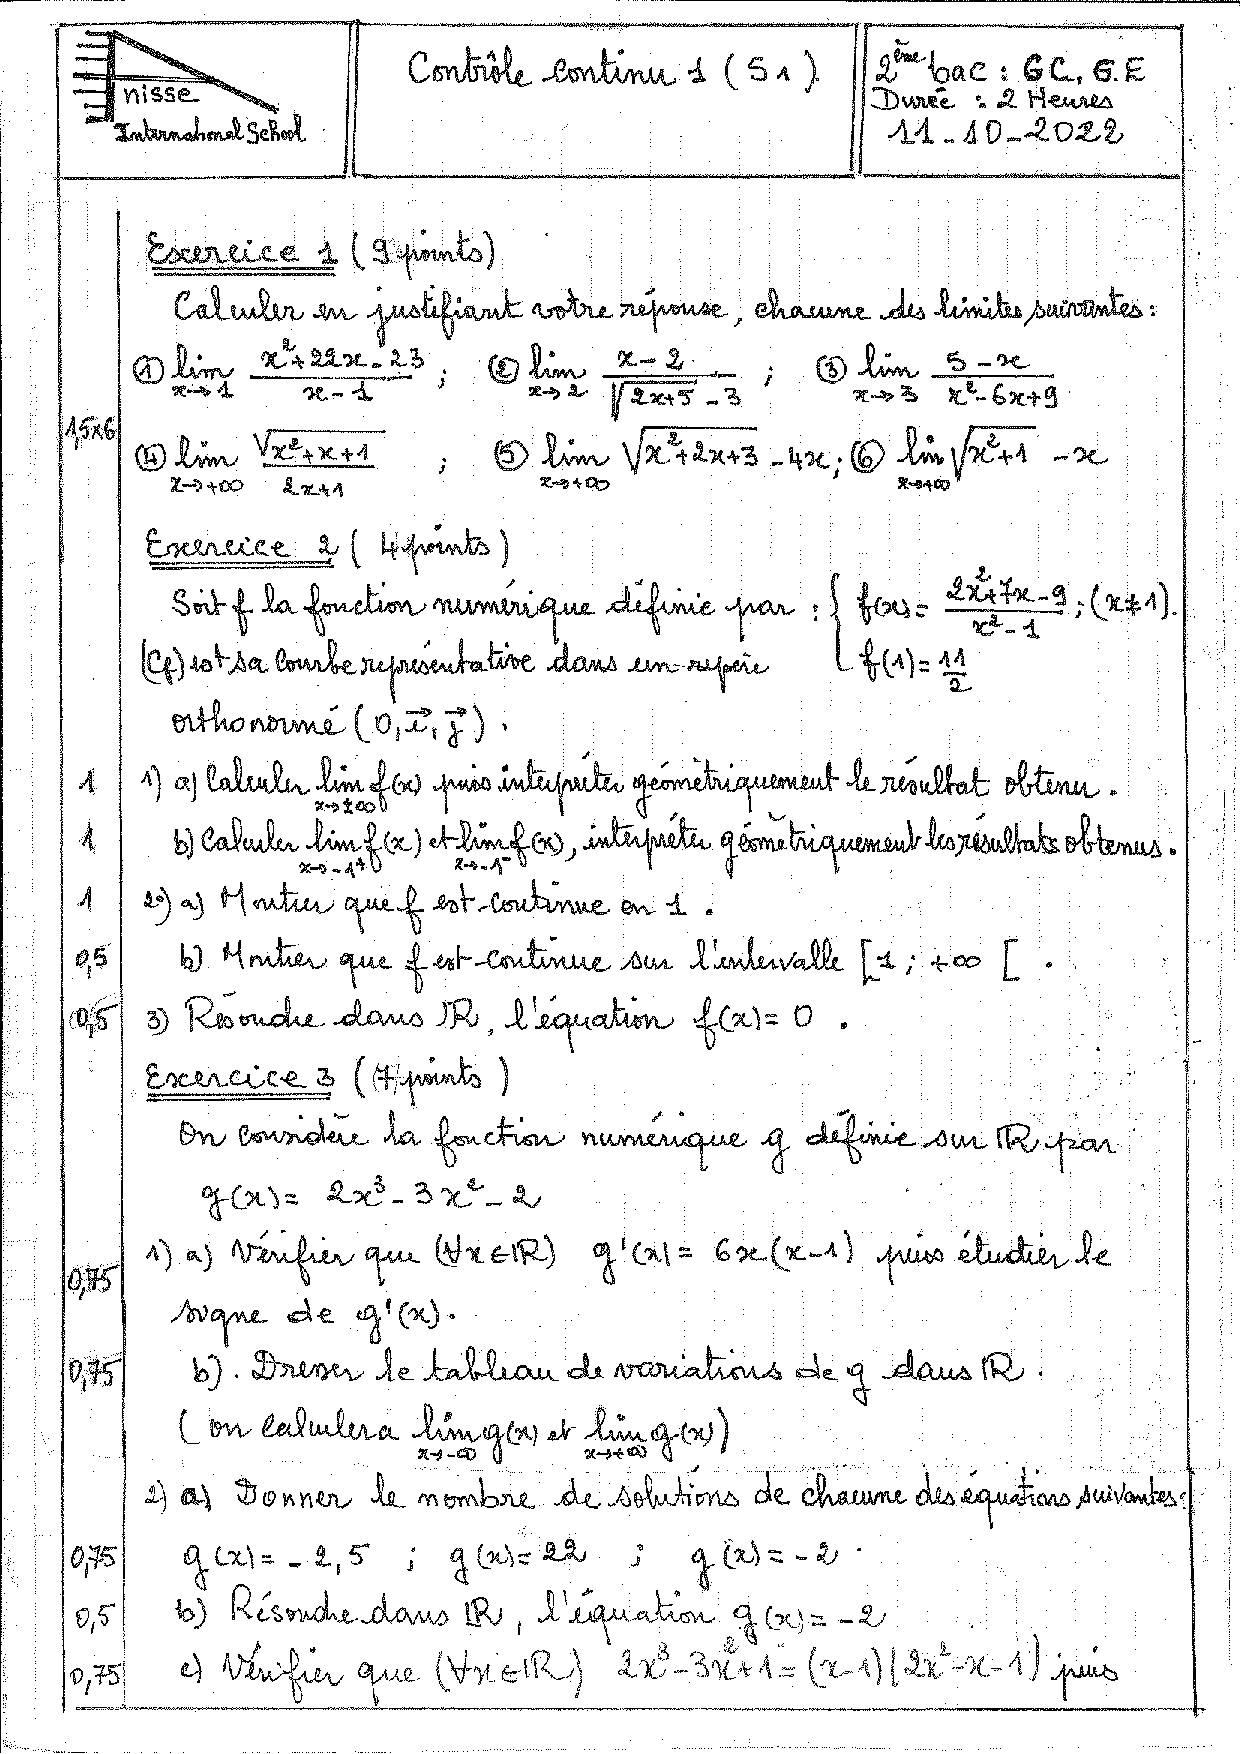 nisse
International School
Contrôle continu 1 (S1)
2ème bac : GC, G.E
Durée : 2 Heures
11-10-2022
Exercice 1 (9 points)
Calculer en justifiant votre réponse, chacune des limites suivantes :
① lim x→1 (x²+22x-23)/(x-1) ; ② lim x→2 (x-2)/(√(2x+5) - 3) ; ③ lim x→3 (5-x)/(x²-6x+9)
1,5x6
④ lim x→+∞ √(x²+x+1)/(2x+1) ; ⑤ lim x→+∞ √(x²+2x+3) - 4x ; ⑥ lim x→+∞ √(x²+1) - x
Exercice 2 (4 points)
Soit f la fonction numérique définie par : { f(x) = (2x²+7x-9)/(x²-1) ; (x≠1).
(Cf) est sa courbe représentative dans un repère { f(1) = 11/2
orthonormé (O, i⃗, j⃗).
1 1) a) Calculer lim x→±∞ f(x) puis interpréter géométriquement le résultat obtenu.
1 b) Calculer lim x→-1⁺ f(x) et lim x→-1⁻ f(x), interpréter géométriquement les résultats obtenus.
1 2°) a) Montrer que f est continue en 1.
0,5 b) Montrer que f est continue sur l'intervalle [1 ; +∞ [ .
0,5 3) Résoudre dans ℝ, l'équation f(x) = 0 .
Exercice 3 (7 points)
On considère la fonction numérique g définie sur ℝ par
g(x) = 2x³ - 3x² - 2
1) a) Vérifier que (∀x∈ℝ) g'(x) = 6x(x-1) puis étudier le
0,75
signe de g'(x).
0,75 b). Dresser le tableau de variations de g dans ℝ.
(on calculera lim x→-∞ g(x) et lim x→+∞ g(x))
2) a) Donner le nombre de solutions de chacune des équations suivantes :
0,75 g(x) = -2,5 ; g(x) = 22 ; g(x) = -2 .
0,5 b) Résoudre dans ℝ, l'équation g(x) = -2
0,75 c) Vérifier que (∀x∈ℝ) 2x³-3x²+1 = (x-1)(2x²-x-1) puis